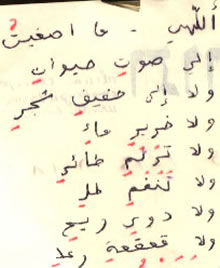 أللهي - ما اصغيت
إلى صوت حيوان
ولا إلى حفيف شجر
ولا خرير ماء
ولا ترنم طائر
ولا تنغم ظل
ولا دوي ريح
ولا قعقعة رعد